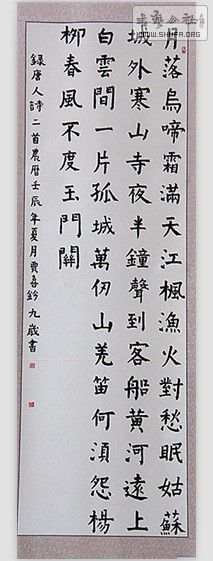 月落烏啼霜滿天江楓漁火對愁眠姑蘇
城外寒山寺夜半鐘聲到客船黃河遠上
白雲間一片孤城萬仞山羌笛何須怨楊
柳春風不度玉門關
錄唐人詩二首農曆壬辰年夏月賈喜九歲書
WWW.SHUFA.ORG